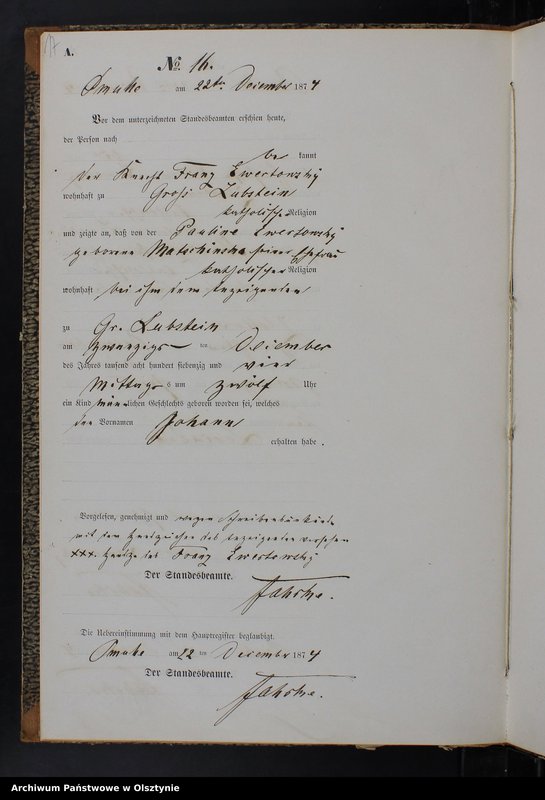 17
A.
No. 16.
am 22ten Dezember 1874
Vor dem unterzeichneten Standesbeamten erschien heute,
der Person nach
be kannt
der Knecht Franz Ewertowsky
wohnhaft zu Groß Lubstein
katholischer Religion
und zeigte an, daß von der Pauline Ewertowsky
geborene seiner Ehefrau
katholischer Religion
wohnhaft bei ihm dem Anzeigenden
zu Gr. Lubstein
am zwanzigs ten Dezember
des Jahres tausend acht hundert siebenzig und vier
Mittags s um zwölf Uhr
ein Kind männlichen Geschlechts geboren worden sei, welches
den Vornamen Johann
erhalten habe.
Vorgelesen, genehmigt und wegen
mit dem Handzeichen des Anzeigenden versehen
XXX. Handzeichen des Franz Ewertowsky
Der Standesbeamte.
Die Uebereinstimmung mit dem Hauptregister beglaubigt.
am 22 ten Dezember 1874
Der Standesbeamte.
Archiwum Państwowe w Olsztynie